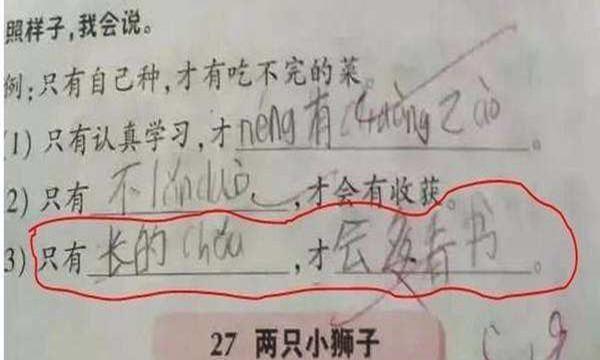 照样子,我会说。
例:只有自己种,才有吃不完的菜。
(1) 只有认真学习,才 néng 有 chuàng 乙 ào 。
(2) 只有 不 lǎn duò ,才会有收获。
(3) 只有 长的 chǒu ,才 会 多 看 书 。
27 两只小狮子